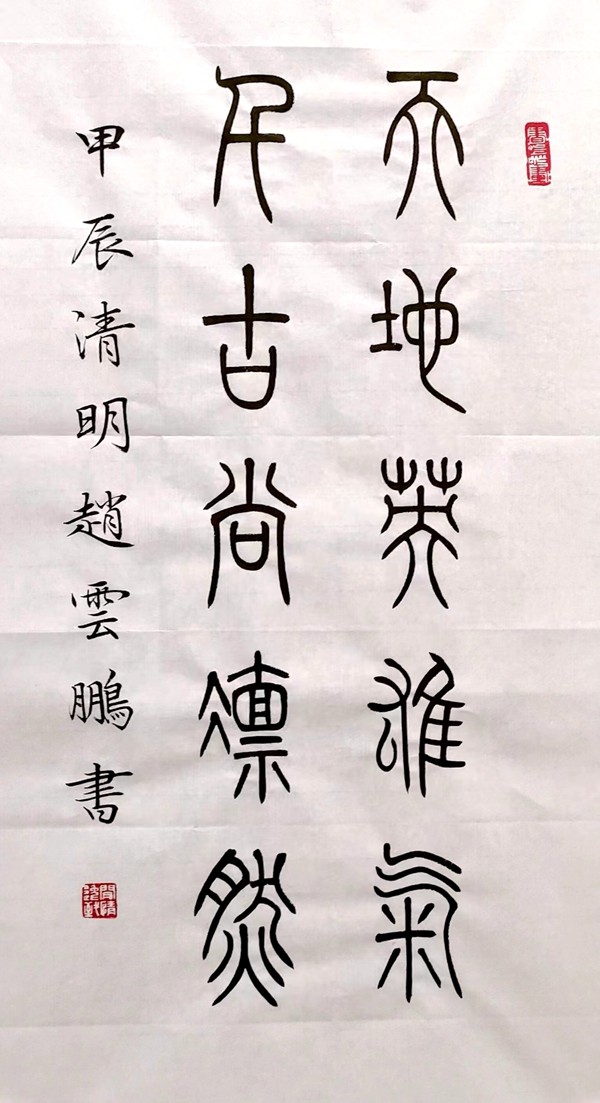 天地英雄氣
千古尚凜然
甲辰清明趙雲鵬書